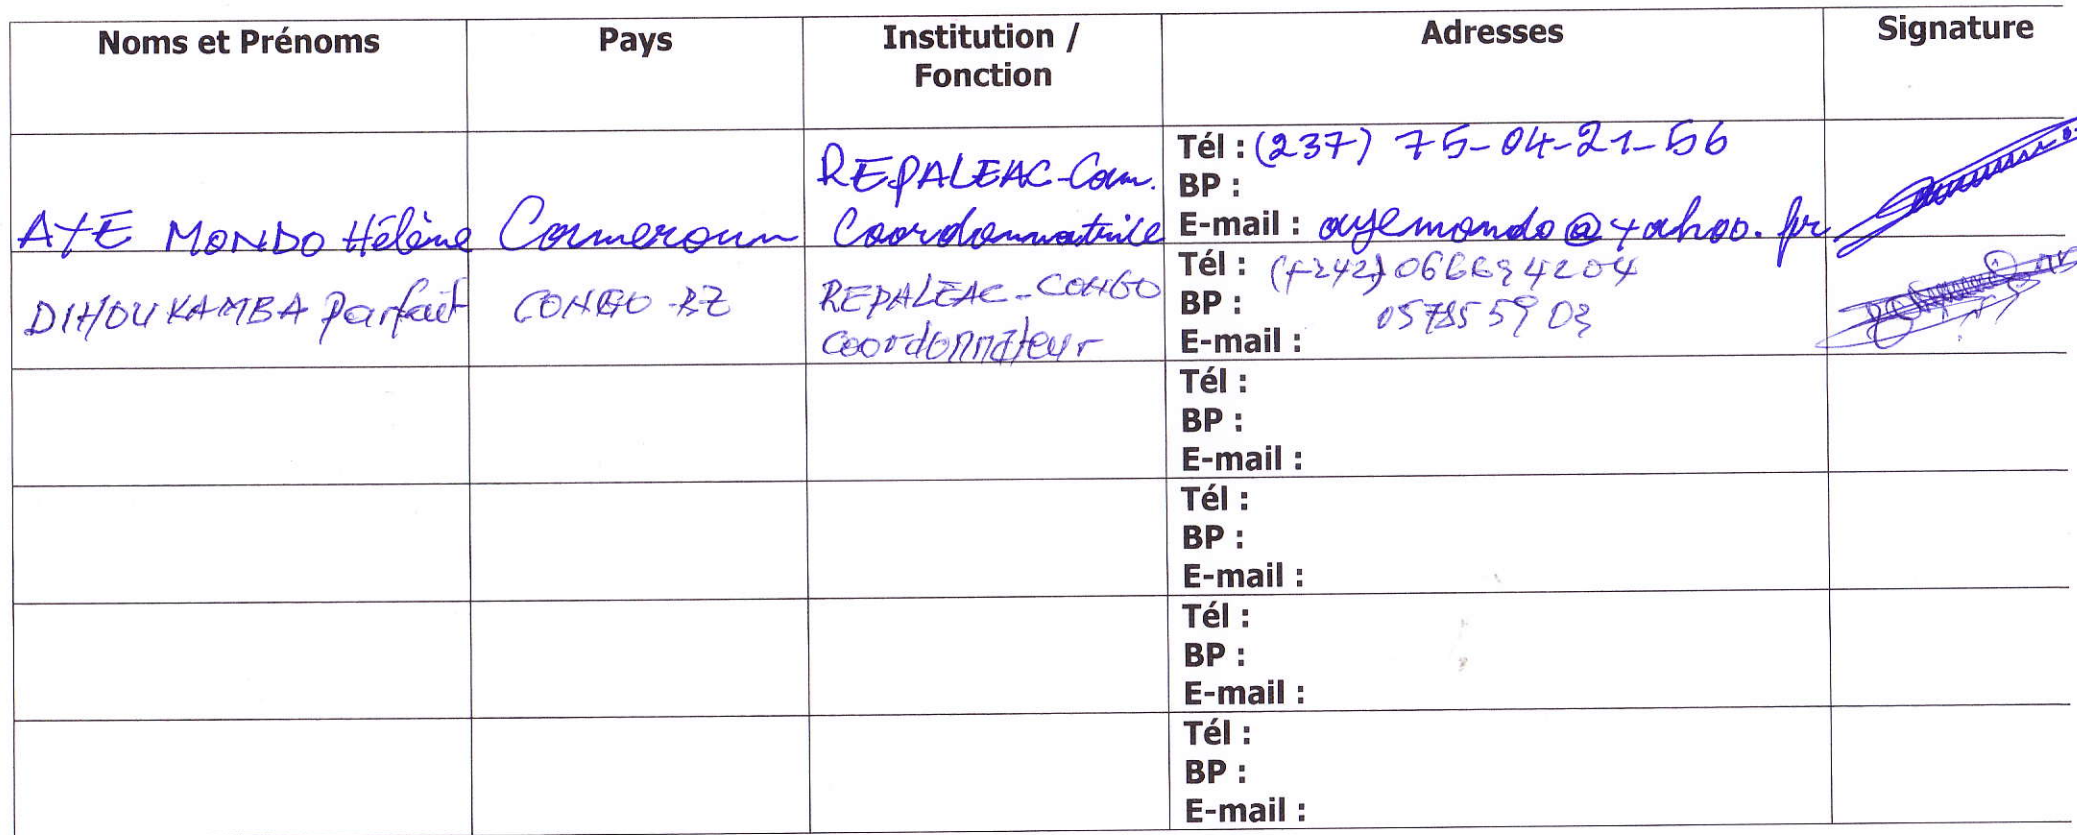 Noms et Prénoms
Pays
Institution /
Fonction
Adresses
Signature
AYE MONDO Hélène
Cameroun
REPALEAC-Cam.
Coordonnatrice
Tél : (237) 75-04-21-56
BP :
E-mail : ayemondo@yahoo.fr
DIHOUKAMBA Parfait
CONGO-BZ
REPALEAC-CONGO
Coordonnateur
Tél : (+242) 066694204
BP :
E-mail :
Tél :
BP :
E-mail :
Tél :
BP :
E-mail :
Tél :
BP :
E-mail :
Tél :
BP :
E-mail :